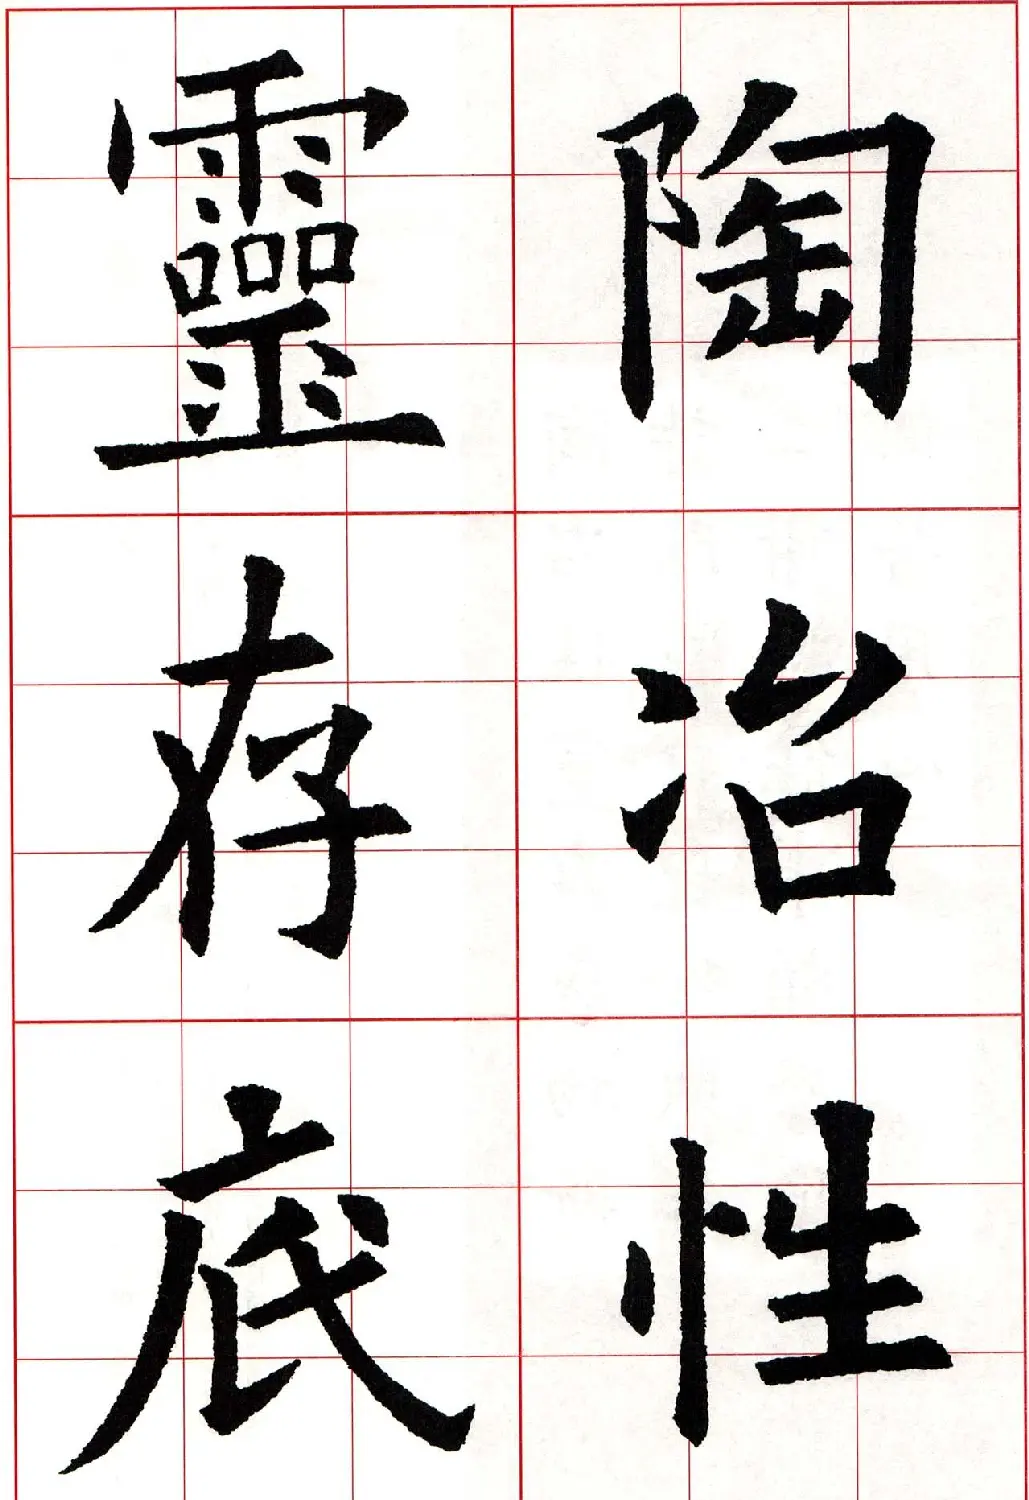 陶冶性
靈存底